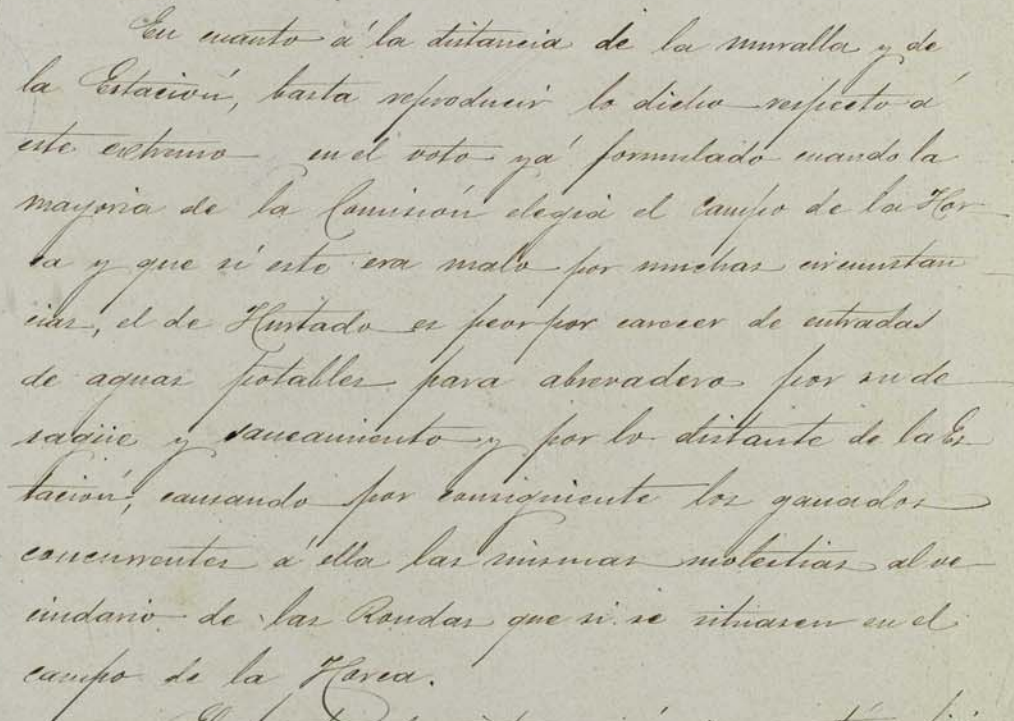 En cuanto á la distancia de la muralla y de
la Estación, basta reproducir lo dicho respecto á
este extremo en el voto yá formulado cuando la
mayoria de la Comisión elegia el campo de la Hor
ca y que si este era malo por muchas circunstan
cias, el de Hurtado es peor por carecer de entradas
de aguas potables para abrevadero por su de
sagüe y saneamiento y por lo distante de la Es
tación, causando por consiguiente los ganados
concurrentes á ella las mismas molestias al ve
cindario de las Rondas que si se situasen en el
campo de la Horca.